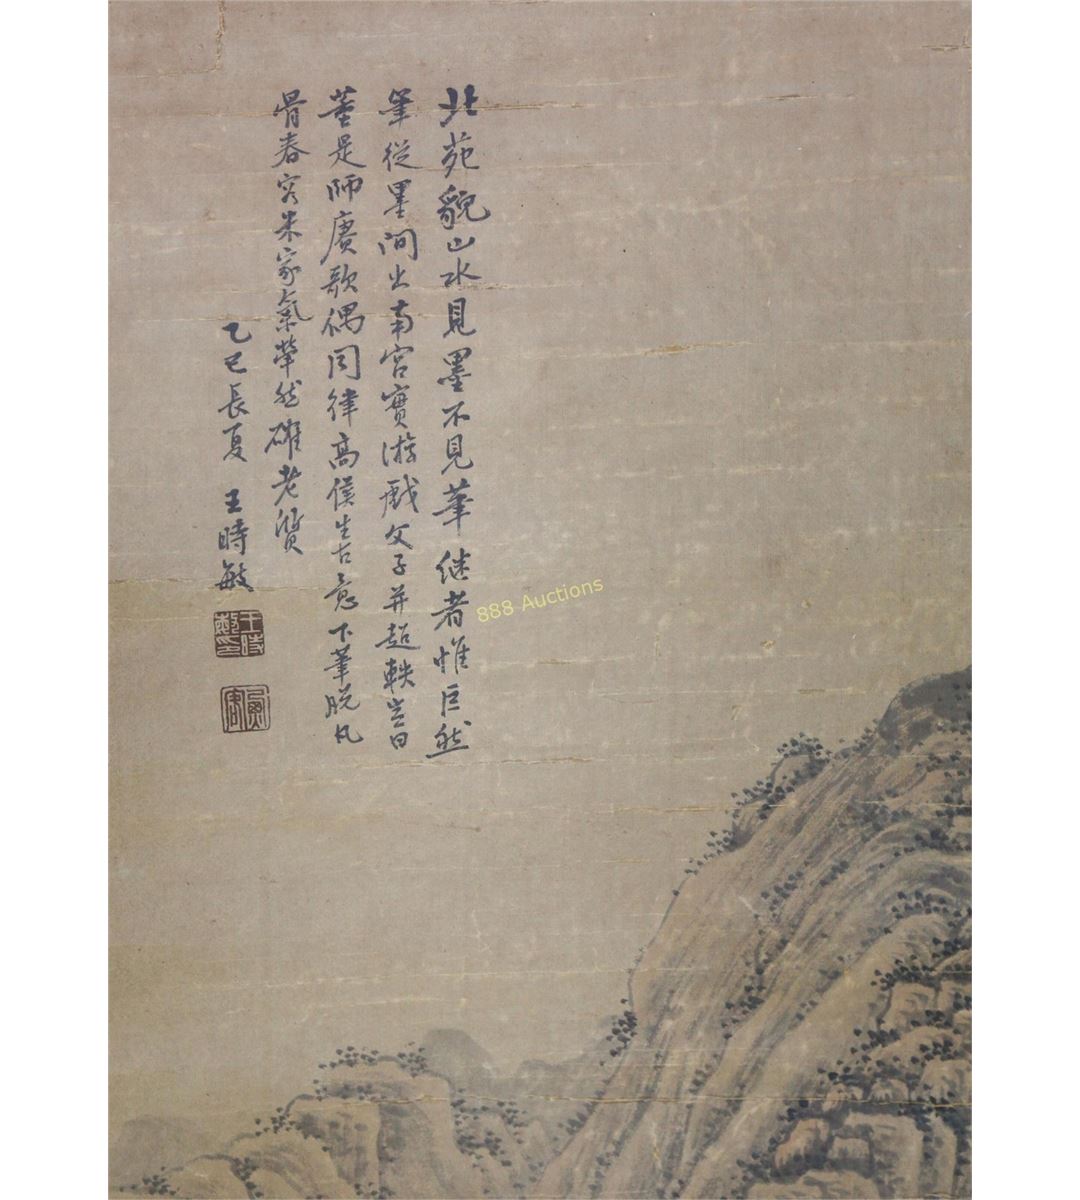 北苑貌山水見墨不見筆继者惟巨然
筆從墨間出南宮實游戲父子并超軼豈曰
董是師賡歌偶同律高侯生古意下筆脱凡
骨春容米家氣犖然確老潠
乙巳長夏 王時敏
王時敏印
888 Auctions